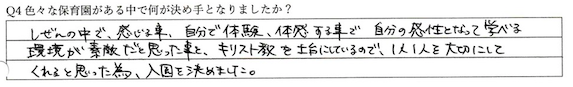 Q4 色々な保育園がある中で何が決め手となりましたか？
しぜんの中で、感じる事、自分で体験、体感する事で 自分の感性となって学べる
環境が素敵だと思った事と、キリスト教を土台にしているので、1人1人を大切にして
くれると思った為、入園を決めました。